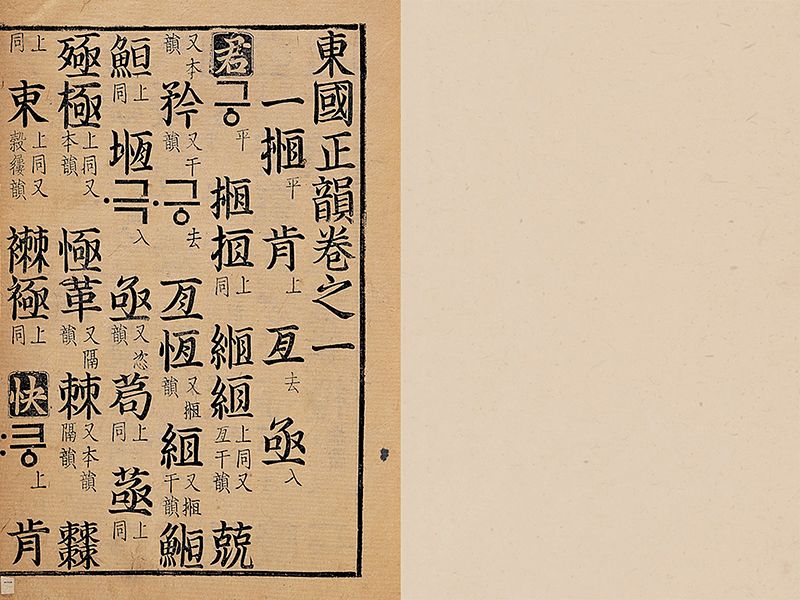 東國正韻卷之一
一 揯平 肯上 亙去 亟入
君 긍平 揯 搄上同 緪 絚上同又亙干韻 兢
又本韻 矜又干韻 ·긍去 亙 恆又揯韻 絚又揯干韻 䱭
䱇上同 堩 ·극入 亟又恣韻 茍上同 上同
殛 極上同又本韻 㥛 革又隔韻 棘又本韻隔韻
上同 上同又穀韻 襋 上同 快 :킁上 肯